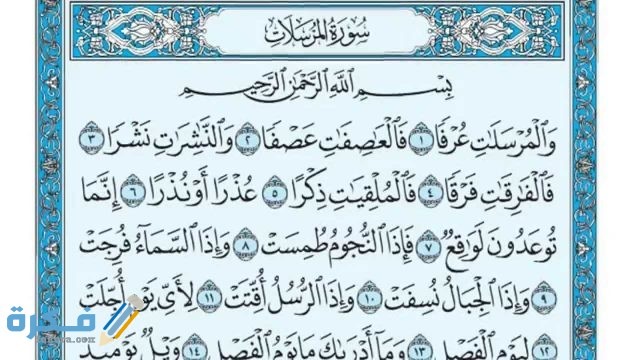 سُورَةُ المُرْسَلَاتِ
بِسْمِ اللَّهِ الرَّحْمَٰنِ الرَّحِيمِ
وَالْمُرْسَلَاتِ عُرْفًا ١ فَالْعَاصِفَاتِ عَصْفًا ٢ وَالنَّاشِرَاتِ نَشْرًا ٣
فَالْفَارِقَاتِ فَرْقًا ٤ فَالْمُلْقِيَاتِ ذِكْرًا ٥ عُذْرًا أَوْ نُذْرًا ٦ إِنَّمَا
تُوعَدُونَ لَوَاقِعٌ ٧ فَإِذَا النُّجُومُ طُمِسَتْ ٨ وَإِذَا السَّمَاءُ فُرِجَتْ
٩ وَإِذَا الْجِبَالُ نُسِفَتْ ١٠ وَإِذَا الرُّسُلُ أُقِّتَتْ ١١ لِأَيِّ يَوْمٍ أُجِّلَتْ
لِيَوْمِ الْفَصْلِ ١٣ وَمَا أَدْرَاكَ مَا يَوْمُ الْفَصْلِ ١٤ وَيْلٌ يَوْمَئِذٍ
فكرة